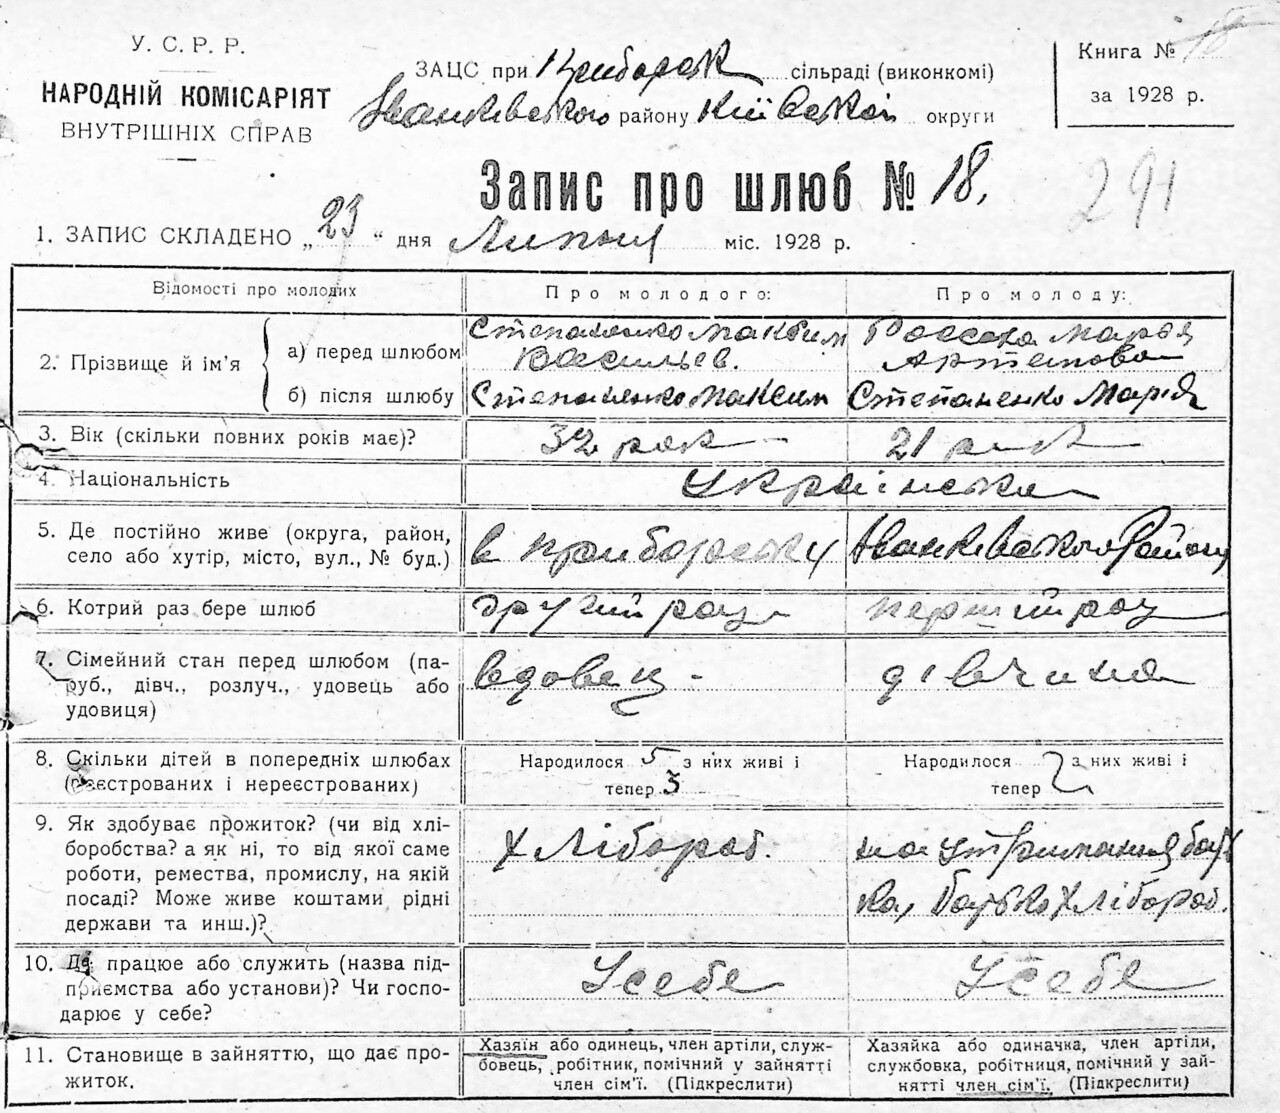 У. С. Р. Р.
НАРОДНІЙ КОМІСАРІЯТ
ВНУТРІШНІХ СПРАВ
ЗАЦС при Приборск сільраді (виконкомі)
Іванківського району Київської округи
Книга № 18
за 1928 р.
Запис про шлюб № 18.
291
1. ЗАПИС СКЛАДЕНО „23“ дня Липня міс. 1928 р.
Відомості про молодих
Про молодого:
Про молоду:
2. Прізвище й ім’я
а) перед шлюбом
Степаненко Максим
Васильев.
Марія
Артемова
б) після шлюбу
Степаненко Максим
Степаненко Марія
3. Вік (скільки повних років має)?
32 рок
21 рок
4. Національність
Українська
5. Де постійно живе (округа, район,
село або хутір, місто, вул., № буд.)
в Приборську
Іванківського Району
6. Котрий раз бере шлюб
другий раз
перший раз
7. Сімейний стан перед шлюбом (па-
руб., дівч., розлуч., удовець або
удовиця)
вдовец -
дівчина
8. Скільки дітей в попередніх шлюбах
(реєстрованих і нереєстрованих)
Народилося 5 з них живі і
тепер 3
Народилося з них живі і
тепер
9. Як здобуває прожиток? (чи від хлі-
боробства? а як ні, то від якої саме
роботи, ремества, промислу, на якій
посаді? Може живе коштами рідні
держави та инш.)?
Хлібороб.
на утримання бать
ка, батько Хлібороб.
10. Де працює або служить (назва під-
приємства або установи)? Чи госпо-
дарює у себе?
У себе
У себе
11. Становище в зайняттю, що дає про-
житок.
Хазяїн або одинець, член артіли, служ-
бовець, робітник, помічний у зайнятті
член сім’ї. (Підкреслити)
Хазяйка або одиначка, член артіли,
службовка, робітниця, помічний у зай-
нятті член сім’ї. (Підкреслити)